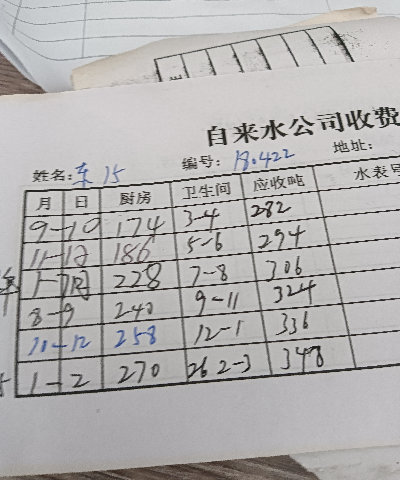 自来水公司收费
姓名: 东15 编号: 18.422 地址:
月 日 厨房 卫生间 应收吨 水表号
9-10 174 3-4 282
11-12 186 5-6 294
228 7-8 306
8-9 240 9-11 324
10-12 258 12-1 336
1-2 270 26 2-3 348